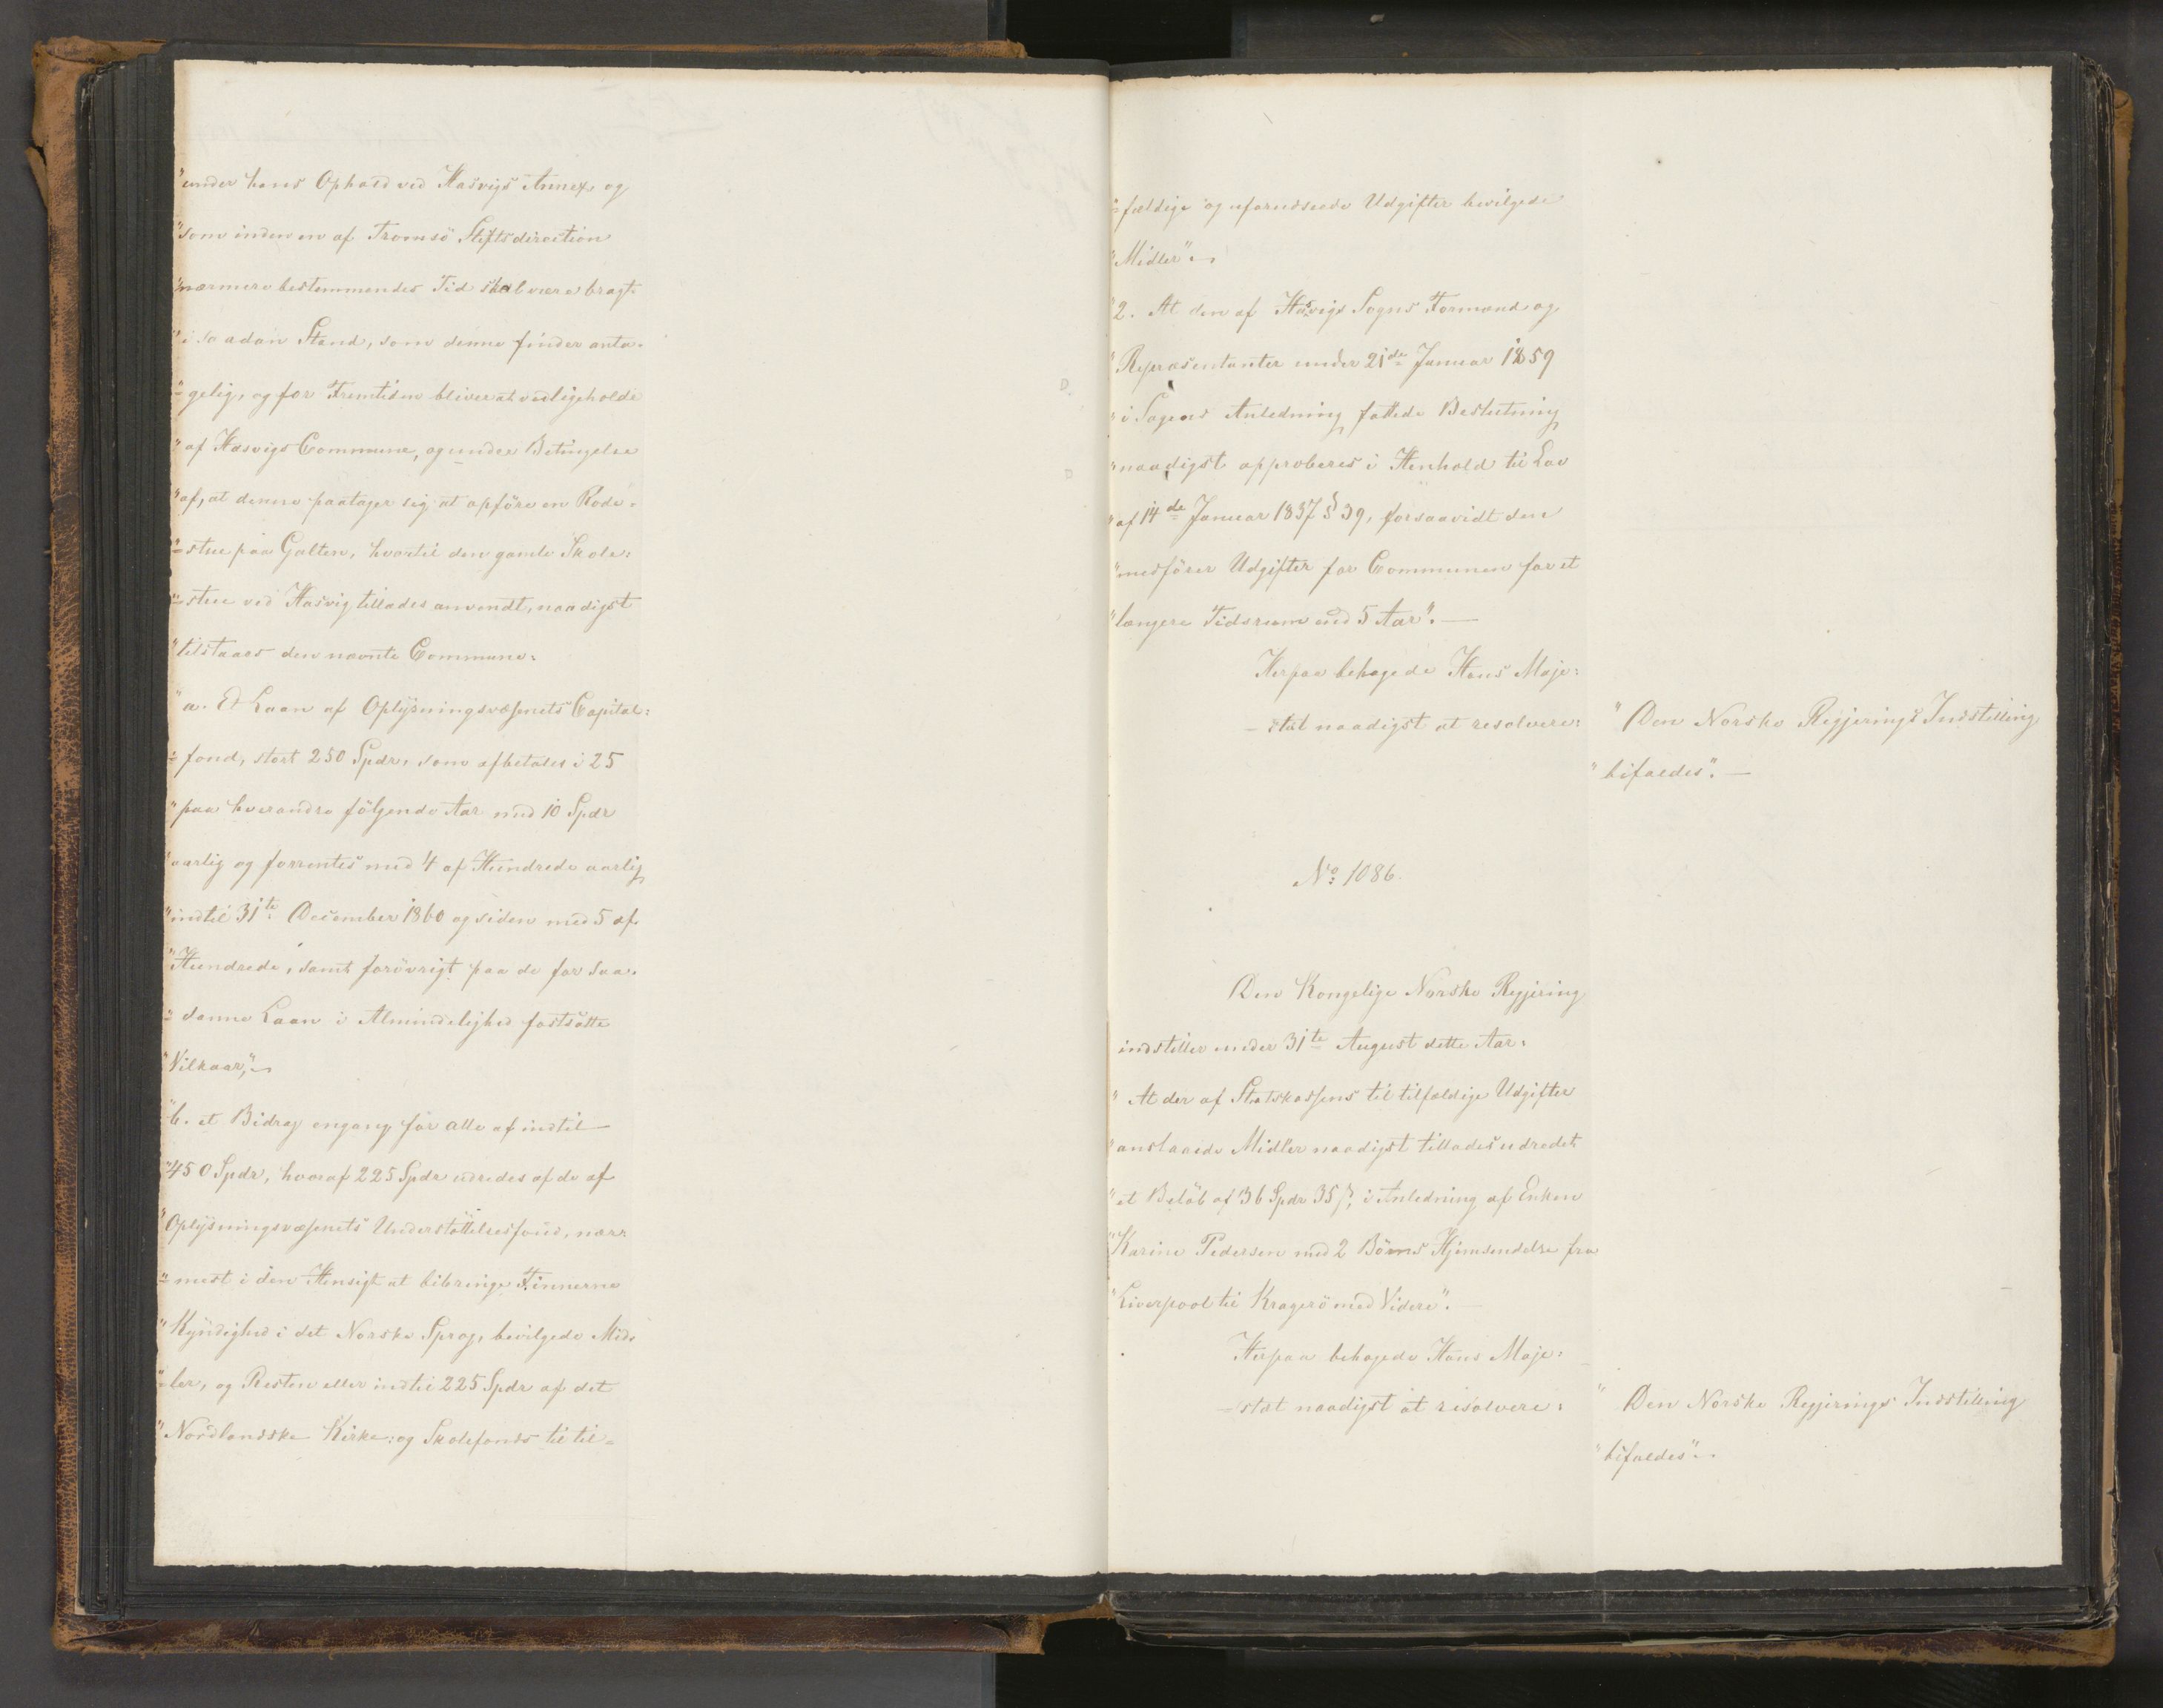 "under hans Ophold ved Hasvigs Annex og
"som inden en af Tromsö Stiftsdirection
"nærmere bestemmendes Tid skal være bragt
"i saadan Stand, som denne finder anta-
"=gelig, og for Fremtiden bliver at vedligeholde
"af Hasvigs Commune, og under Betingelse
"af, at denne paatager sig at opföre en Rode-
"=stue paa Galten, hvortil den gamle Skole=
"=stue ved Hasvig tillades anvendt, naadigst
"tilstaaes den nævnte Commune:
"a. Et Laan af Oplysningsvæsenets Capital=
"=fond, stort 250 Spdr, som afbetales i 25
"paa hverandre fölgende Aar med 10 Spdr
"aarlig og forrentes med 4 af Hundrede aarlig
"indtil 31te December 1860 og siden med 5 af
"Hundrede, samt forövrigt paa de for saa-
"=danne Laan i Almindelighed fastsatte
"Vilkaar,"
"b. et Bidrag engang for alle af indtil
"450 Spdr, hvoraf 225 Spdr udredes af de af
"Oplysningsvæsenets Understöttelsesfond, nær=
"=mest i den Hensigt at bibringe Finnerne
"Kyndighed i det Norske Sprog, bevilgede Mid-
"=ler, og Resten eller indtil 225 Spdr af det
"Nordlandske Kirke= og Skolefonds til til=
"=fældige og uforudseede Udgifter bevilgede
"Midler".
"2. At den af Hasvigs Sogns Formænd og
"Repræsentanter under 21de Januar 1859
"i Sagens Anledning fattede Beslutning
"naadigst approberes i Henhold til Lov
"af 14de Januar 1837 § 39, forsaavidt den
"medförer Udgifter for Communen for et
"længere Tidsrum end 5 Aar".
Herpaa behagede Hans Maje=
=stæt naadigst at resolvere:
"Den Norske Regjerings Indstilling
"bifaldes".
No 1086.
Den Kongelige Norske Regjering
indstiller under 31te August dette Aar:
"At der af Statskassens til tilfældige Udgifter
"anslaaede Midler naadigst tillades udredet
"et Belöb af 36 Spdr 35 ß, i Anledning af Enken
"Karine Pedersen med 2 Börns Hjemsendelse fra
"Liverpool til Kragerö med Videre".
Herpaa behagede Hans Maje=
=stæt naadigst at resolvere:
"Den Norske Regjerings Indstilling
"bifaldes".